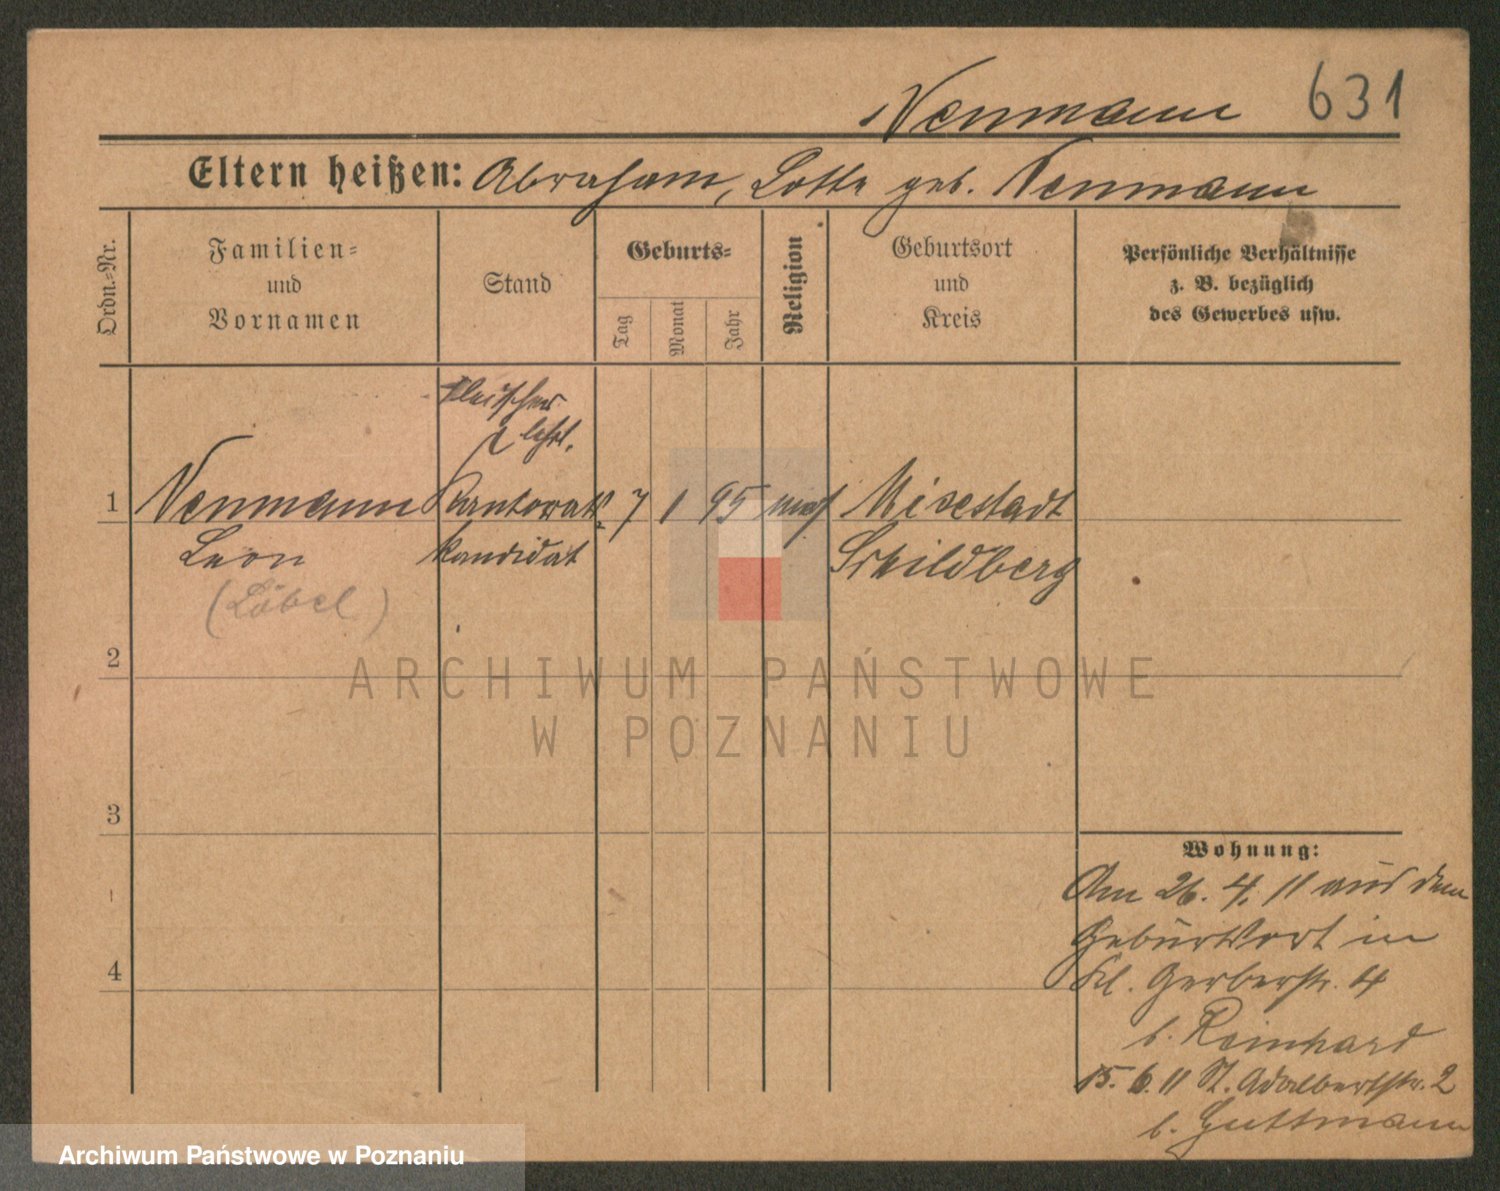 Neumann 631
Eltern heißen: Abraham, Lotte geb. Neumann
Ordn.-Nr.
Familien-
und
Vornamen
Stand
Geburts-
Tag
Monat
Jahr
Religion
Geburtsort
und
Kreis
Persönliche Verhältnisse
z. B. bezüglich
des Gewerbes usw.
Fleischer
lehrl.
1 Neumann Kantorats- 7 1 95 mos Mixstadt
Leon kandidat Schildberg
(Löbel)
2
3
4
Wohnung:
Am 26. 4. 11 aus dem
Geburtsort in
Kl. Gerberstr. 4
b. Reinhard
15. 6. 11 St. Adalbertstr. 2
b. Guttmann
ARCHIWUM PAŃSTWOWE
W POZNANIU
Archiwum Państwowe w Poznaniu